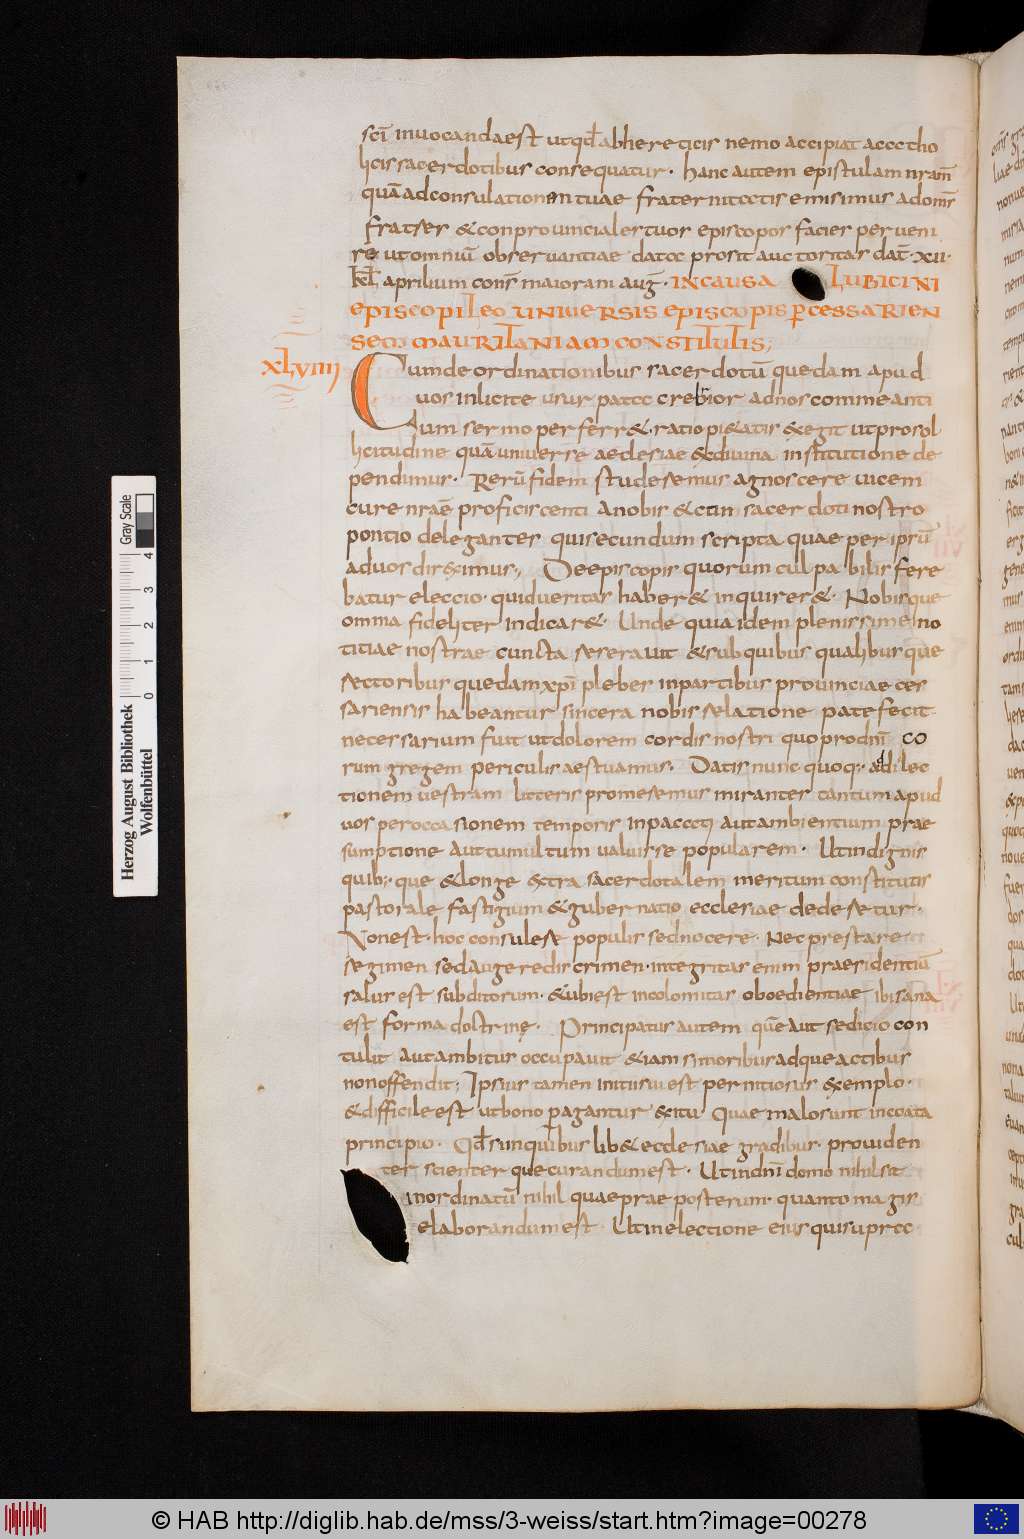 scī invocandaest utqđ abhereticis nemo accipiat accctho
licissacerdotibus consequatur · hanc autem epistulam nrām
quā adconsulationem tuae fraternitcctis emisimus adomīs
fratser &conprovincialestuos episcopos facies perveni
re utomniū observantiae datcc prosit auctoritas dat̄ · XII ·
kl̄ aprilium cons̄ maiorani aug̅ · INCAUSA LUBICINI
EPISCOPI LEO UNIVERSIS EPISCOPIS P̱CESSARIEN
SEM MAURITANIAM CONSTITUTIS;
XLVIIII
Cumde ordinationibus sacerdotū quedam apud
vos inlicite usurpatcc crebrior adnos commeanti
um sermo perferr& · ratio pi&atis &egit utprosol
licitudine quā universe aeclesiae &divina institutione de
pendimus · Rerū fidem studesemus agnoscere vicem
cure nrāe proficiscenti anobis &ctin sacerdoti nostro
pontio delegantes qui secundum scripta quae per ipsū
advos direximus, De episcopis quorum culpabilis fere
batur eleccio · quid veritas haber& inquirer& · Nobisque
omnia fideliter indicar& · Unde quia idem plenissime no
titiae nostrae cuncta seseravit &subquibus qualibusque
sectoribus quedam xpī plebes inpartibus provinciae ces
sariensis habeantur sincera nobis selatione patefecit
necessarium fuit utdolorem cordis nostri quo prodnī co
rum gregem periculis aestuamus · Datis nunc quoq; adilec
tionem vestram litteris promesemus mirantes tantum apud
vos peroccasionem temporis inpaccti aut ambientium prae
sumptione aut tumultum valuisse popularem · Ut indignis
quib; que &longe extra sacerdotalem meritum constitutis
pastorale fastigium &gubernatio ecclesiae dedesetur ·
Nonest · hoc consulese populis sed nocere · Nec prestare
segimen sed augere discrimen · integritas enim praesidentiū
salus est subditorum · &ubi est incolomitas oboedientiae ibi sana
est forma doctrinę · Principatus autem quē aut sedicio con
tulit aut ambitus occupavit &iam si moribus adque actibus
non offendit; Ipsius tamen initii sui est pernitiosus exemplo ·
&difficile est ut bono peragantur exitu quae malo sunt incoata
principio · Qđ si in quibuslib& ecclesiae gradibus · providen
ter scienter que curandum est · Ut in dnī domo nihil sit
inordinatū nihil quae praeposterum · quanto magis
elaborandum est · Ut in electione eius qui suprcc
Herzog August Bibliothek
Wolfenbüttel
0 1 2 3 4
Gray Scale
© HAB http://diglib.hab.de/mss/3-weiss/start.htm?image=00278